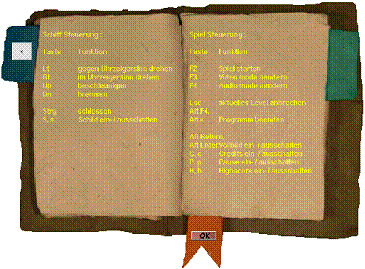 Schiff Steuerung:
Taste Funktion
Lt gegen Uhrzeigersinn drehen
Rt im Uhrzeigersinn drehen
Up beschleunigen
Dn bremsen
Strg schiessen
S, s Schild ein-/ausschalten
Spiel Steuerung:
Taste Funktion
F2 Spiel starten
F3 Video mode aendern
F4 Audio mode aendern
Esc aktuelles Level abbrechen
Alt F4,
Alt x Programm beenden
Alt Return,
Alt Enter Vollbild ein-/ausschalten
C, c Credits ein-/ausschalten
P, p Pause ein-/ausschalten
H, h Highscore ein-/ausschalten
OK